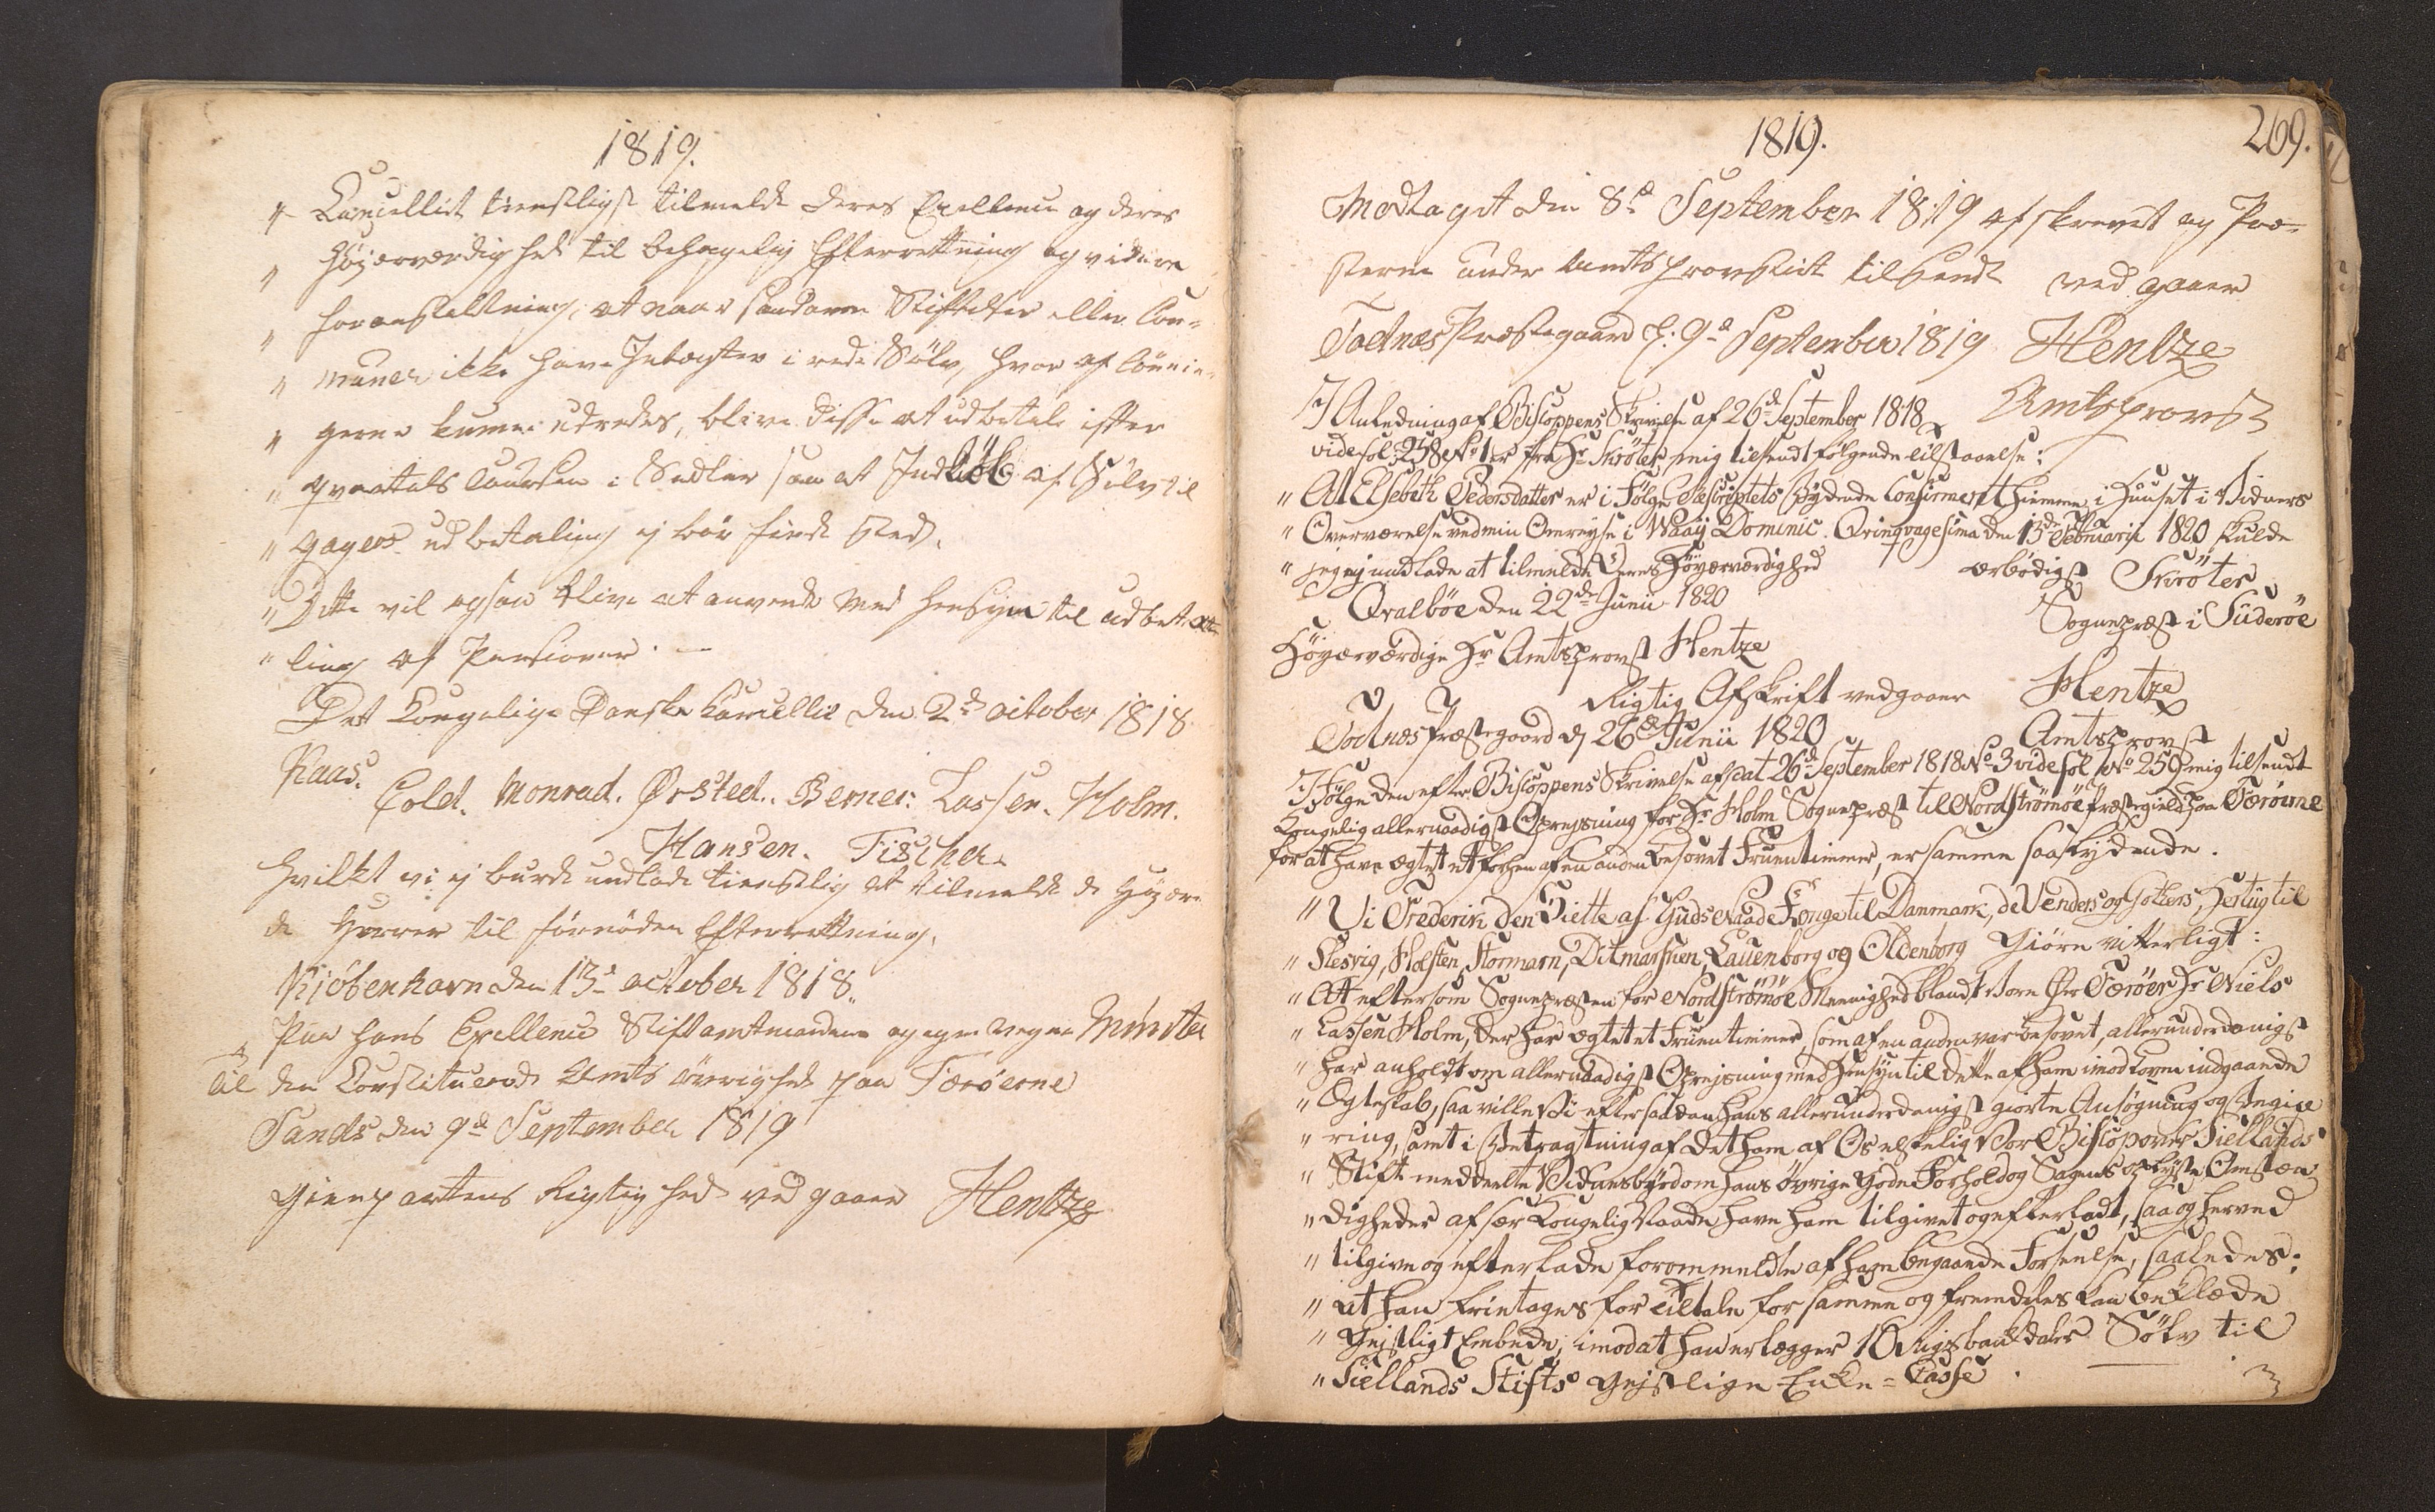 1819.
" Cancelliet tienstligst tilmelde Deres Excellence og Deres
" Høyærværdighed til behagelig Efterretning og videre
" foranstaltning, at naar saadanne Stiftelser eller Com-
" muner ikke have Indtægter i rede Sölv, hvoraf Lönnin-
" gerne kunne udredes, blive disse at udbetale efter
" Qvartals Coursen i Sedler saa at Indkiöb af Sölv til
" Gagers udbetaling ej bör finde Sted.
" Dette vil ogsaa blive at anvende med Hensyn til udbeta-
" ling af Pensioner. —
Det Kongelige Danske Cancellie den 2de October 1818
Kaas.
Cold. Monrad. Ørsted. Berner. Lassen. Holm.
Hansen. Fischer.
Hvilket vi ej burde undlade tienstlig at tilmelde de Høyær-
de Herrer til fornöden Efterretning.
Kiöbenhavn den 13de October 1818.
Paa Hans Excellence Stiftamtmandens og egne vegne Münster
Til den Constituerede Amts övrighed paa Færöerne
Sands den 9de September 1819
Gienpartens Rigtighed ved gaaer Hentze
1819.
269.
Modtaget den 8de September 1819 afskrevet og Præ-
sterne under Amtsprovstiet tilsendt ved gaaer
Todnæs Præstegaard d. 9de September 1819 Hentze
Amtsprovst
I Anledning af Biskoppens Skrivelse af 26de September 1818
vide fol: 258 No 1 er fra Hr Schröter mig tilsendt følgende tilstaaelse:
" At Elsebeth Pedersdatter er i Følge Rescriptets Lydende Confirmert hiemme i Huuset i Vidners
" Overværelse ved min Omreyse i Waaij Dominic. Qvinqvagesima den 13de Februarii 1820 skulde
" jeg ej undlade at tilmelde Deres Høyærværdighed
ærbödigst Schröter
Qvalböe den 22de Junii 1820
Sognepræst i Süderöe
Høyærværdige Hr Amtsprovst Hentze
Rigtig Afskrift vedgaaer Hentze
Todnæs Præstegaard d 26de Junii 1820
Amtsprovst
I Følge den efter Biskoppens Skrivelse af Dat 26de September 1818 No 3 vide fol No 259 mig tilsendt
Kongelig allernaadigst Opreysning for Hr Holm Sognepræst til Nordströmöe Præstegield paa Færöerne
for at have ægtet et forhen af en anden besovet Fruentimmer, er samme saa lydende.
" Vi Frederik den Siette af Guds Naade Konge til Danmark, de Venders og Gothers, Hertug til
" Slesvig, Holsten, Stormarn, Ditmarsken, Lauenborg og Oldenborg Giöre vitterligt:
" At eftersom Sognepræsten for Nordströmöe Meenighed blandt Vore Øer Færöer Hr Niels
" Lassen Holm, der har ægtet et Fruentimmer, som af en anden var besovet, allerunderdanigst
" har anholdt om allernaadigst Opreisning med Hensyn til dette af ham imod Loven indgaaende
" Ægteskab, saa ville Vi efter saadan Hans allerunderdanigst giorte Ansøgning og Begiæ
" ring, samt i Betragtning af det ham af Os elskelig Vor Biskop over Siellands
" Stift meddeelte Vidnesbyrd om Hans övrige Gode Forhold og Sagens oplyste Omstæn
" digheder af sær Kongelig Naade have ham tilgivet og efterladt, saa og herved
" tilgive og efterlade forommeldte af ham begaaende Forseelse, saaledes:
" at han fritages for tiltale for samme og fremdeles kan beklæde
" Geistligt Embede, imod at han erlægger 10 Rigsbankdaler Sölv til
" Siellands Stifts Geistlige Enke-Casse.